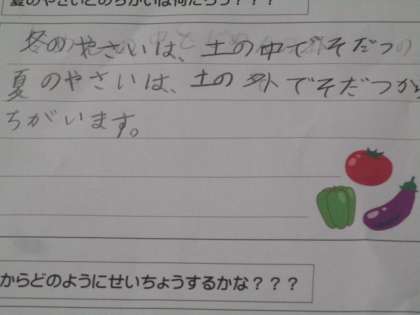 夏のやさいとのちがいは何だろう？？？
冬のやさいは、土の中でそだつ
夏のやさいは、土の外でそだつから
ちがいます。
からどのようにせいちょうするかな？？？